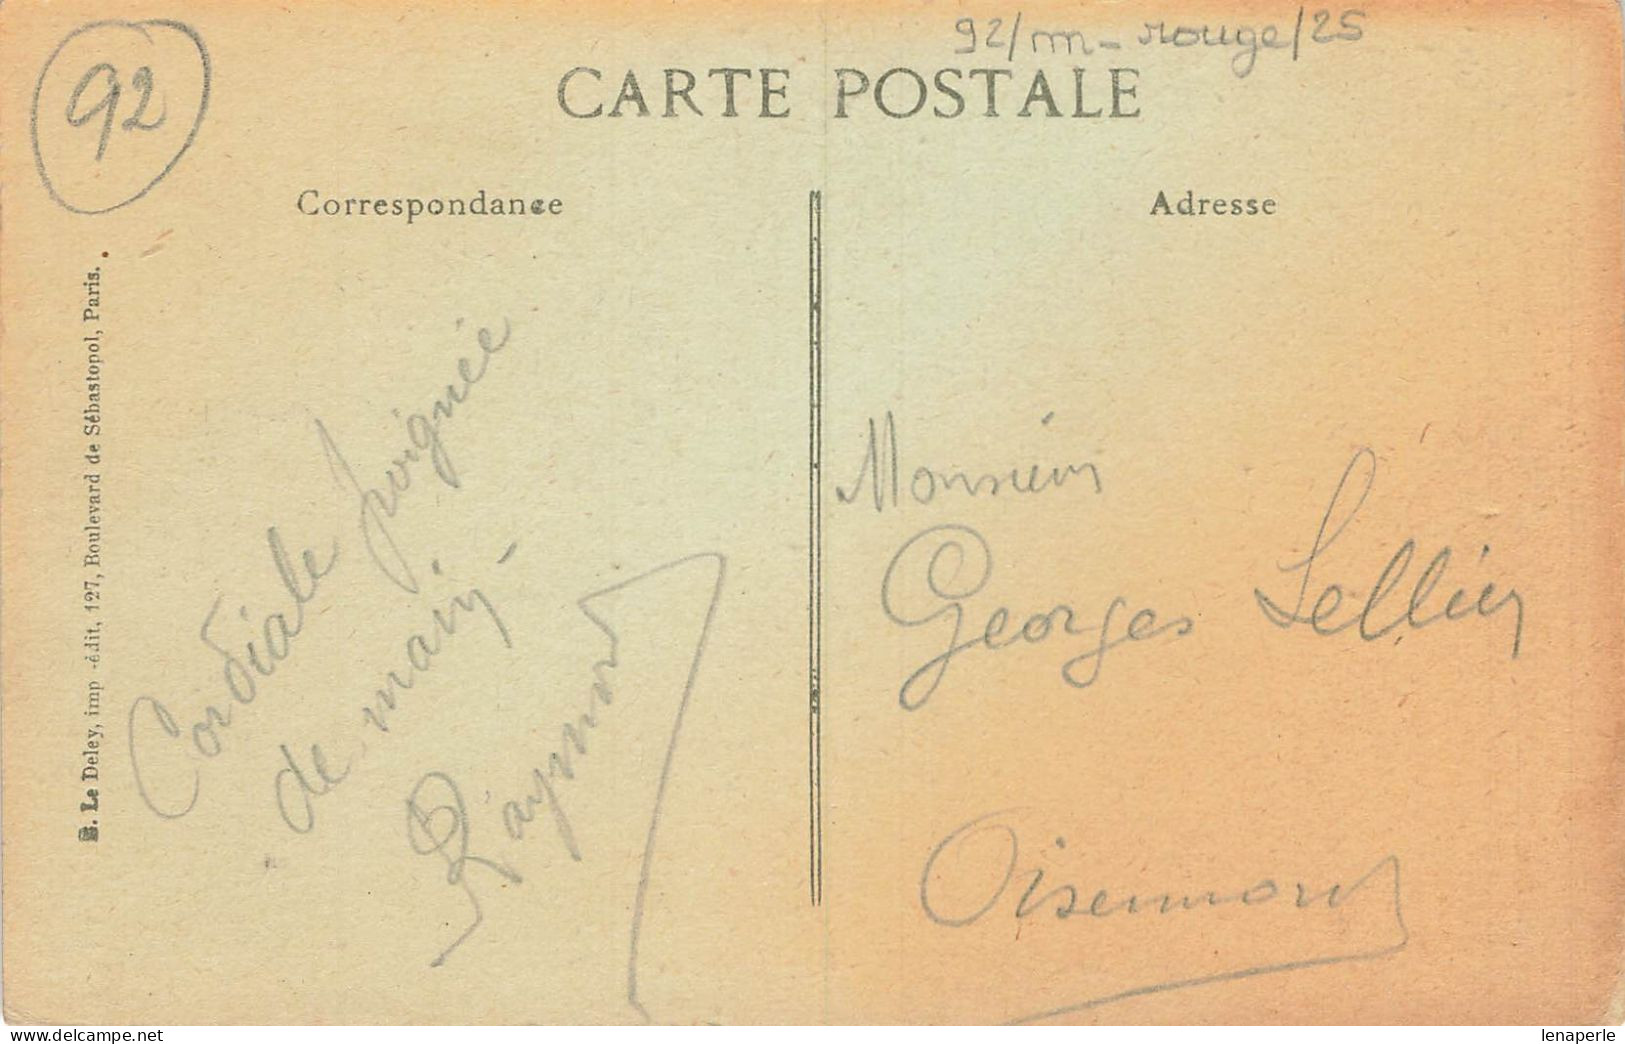 92/m-rouge/25
92
CARTE POSTALE
Correspondance
Adresse
E. Le Deley, imp -édit, 127, Boulevard de Sébastopol, Paris.
Cordiale poignée
de main -
Raymond
Monsieur
Georges Sellier
Oisemont
lenaperle